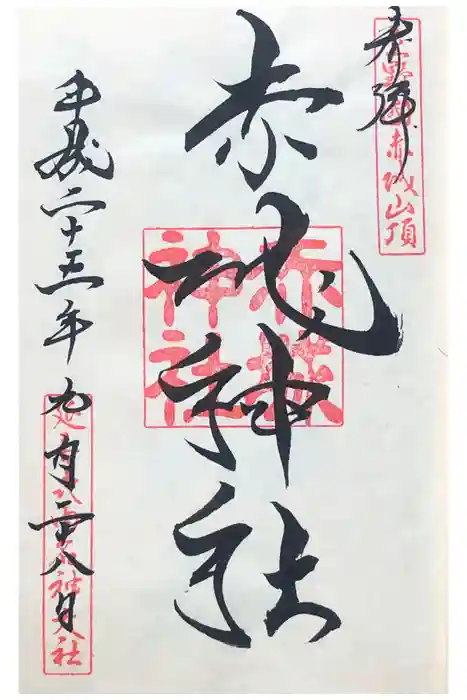 奉拝
赤城山頂
赤城神社
赤城神社
平成二十五年九月二十八日